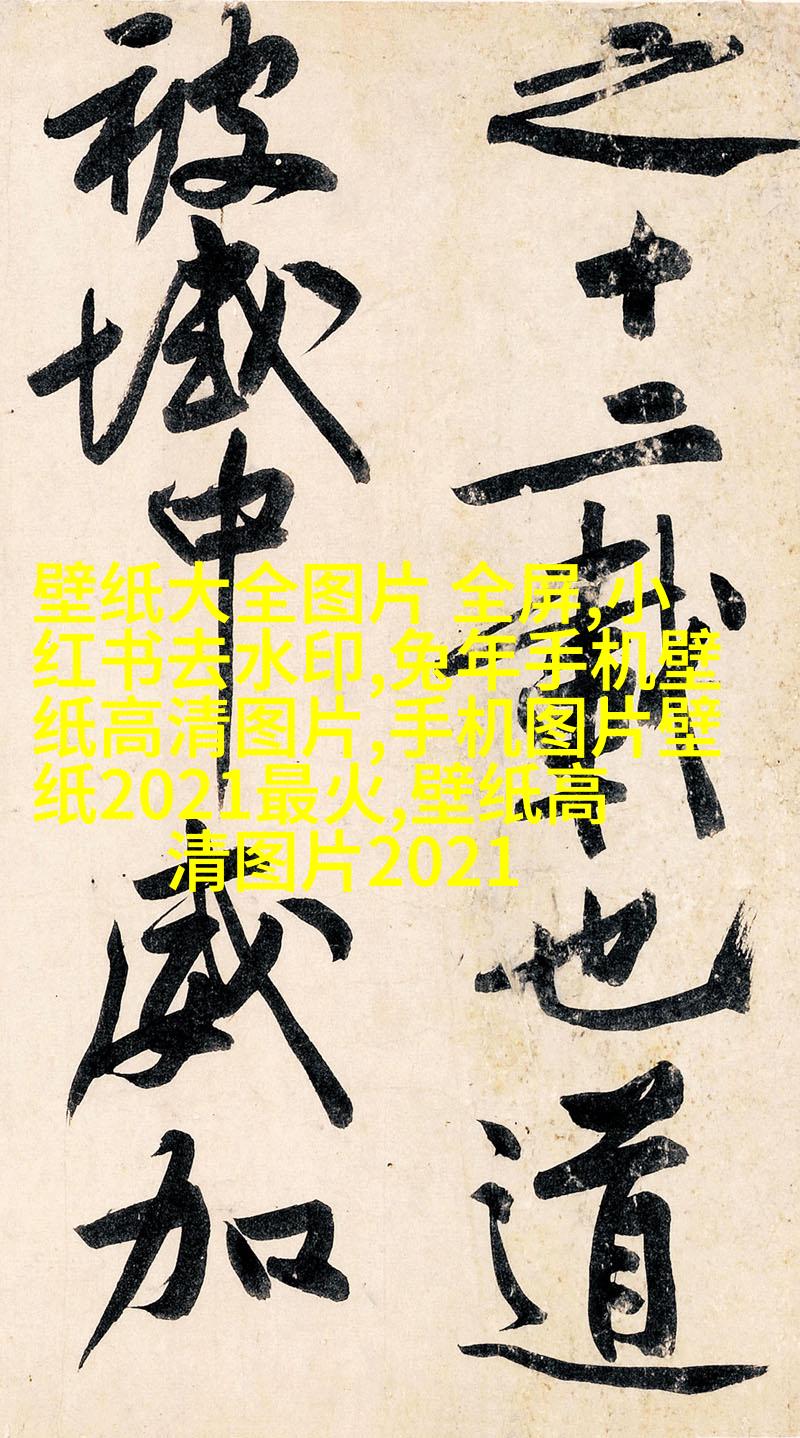 之十二載也道
被域中威加
壁纸大全图片 全屏,小
红书去水印,兔年手机壁
纸高清图片,手机图片壁
纸2021最火,壁纸高
清图片2021